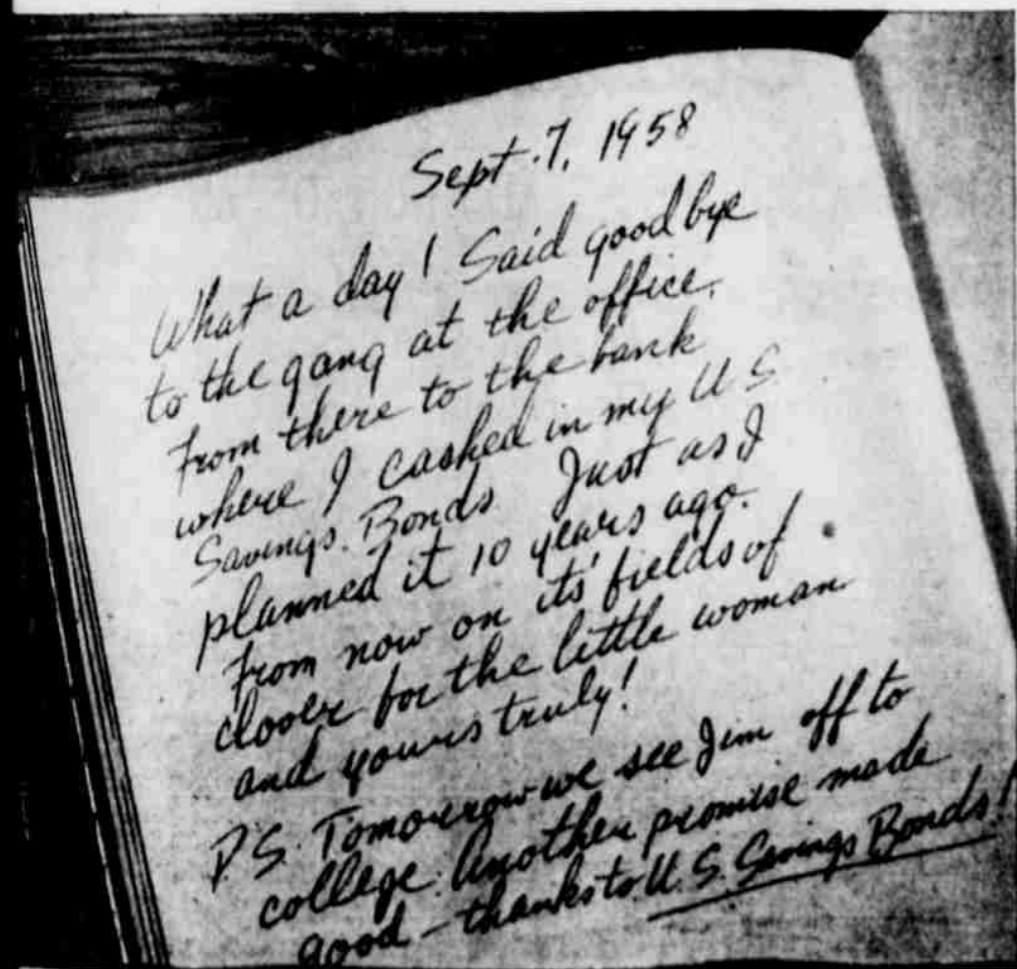 Sept. 7, 1958
What a day! Said goodbye
to the gang at the office.
From there to the bank
where I cashed in my U S
Savings. Bonds Just as I
planned it 10 years ago.
From now on its' fields of
clover for the little woman
and yours truly!
P.S. Tomorrow we see Jim off to
college. Another promise made
good - thanks to U. S. Savings Bonds!